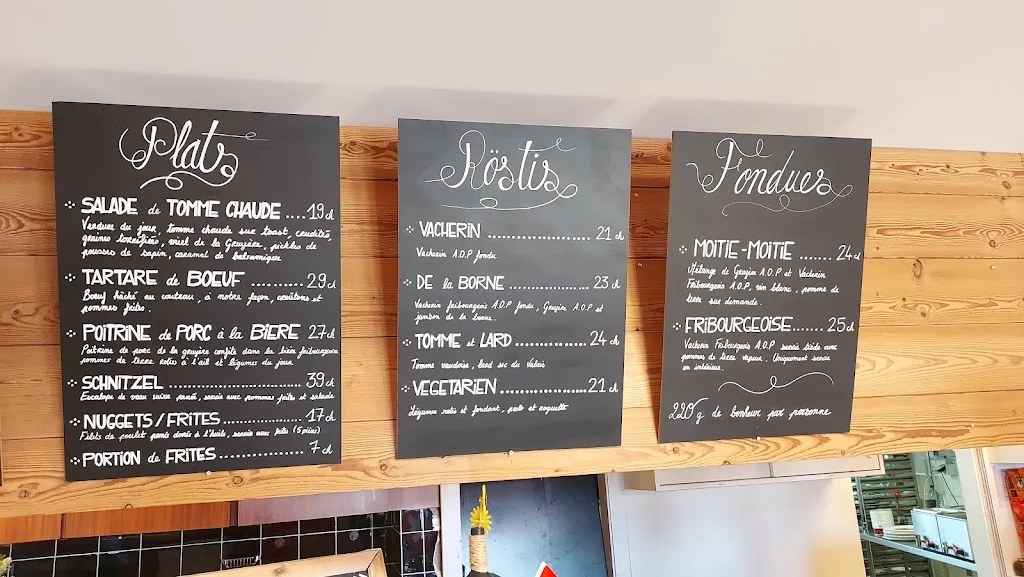 Plats
SALADE de TOMME CHAUDE .... 19 ch
Verdure du jour, tomme chaude sur toast, crudités,
graines torréfiées, miel de la Gruyère, pickles de
pousses de sapin, caramel de balsamique
TARTARE de BOEUF ........ 29 ch
Boeuf hâché au couteau, à notre façon, croûtons et
pommes frites.
POITRINE de PORC à la BIERE 27 ch
Poitrine de porc de la gruyère confite dans la bière fribourgeoise
pommes de terre roties à l'ail et légumes du jour
SCHNITZEL .............................. 39 ch
Escalope de veau suisse panée, servie avec pommes frites et salade
NUGGETS/FRITES .............. 17 ch
Filets de poulet panés dorés à l'huile, servis avec frites (5 pièces)
PORTION de FRITES ................. 7 ch
Röstis
VACHERIN ........................ 21 ch
Vacherin A.O.P fondu
DE la BORNE ................... 23 ch
Vacherin fribourgeois A.O.P fondu, Gruyère A.O.P et
jambon de la borne.
TOMME et LARD ................ 24 ch
Tomme vaudoise, lard sec du Valais
VEGETARIEN .................... 21 ch
Légumes rotis et fondant, pesto et roquette
Fondues
MOITIE-MOITIE ....... 24 ch
Mélange de Gruyère A.O.P et Vacherin
Fribourgeois A.O.P, vin blanc, pomme de
terre sur demande.
FRIBOURGEOISE....... 25 ch
Vacherin Fribourgeois A.O.P servie tiède avec
pommes de terre vapeur. Uniquement servie
en intérieur.
220 g de bonheur par personne